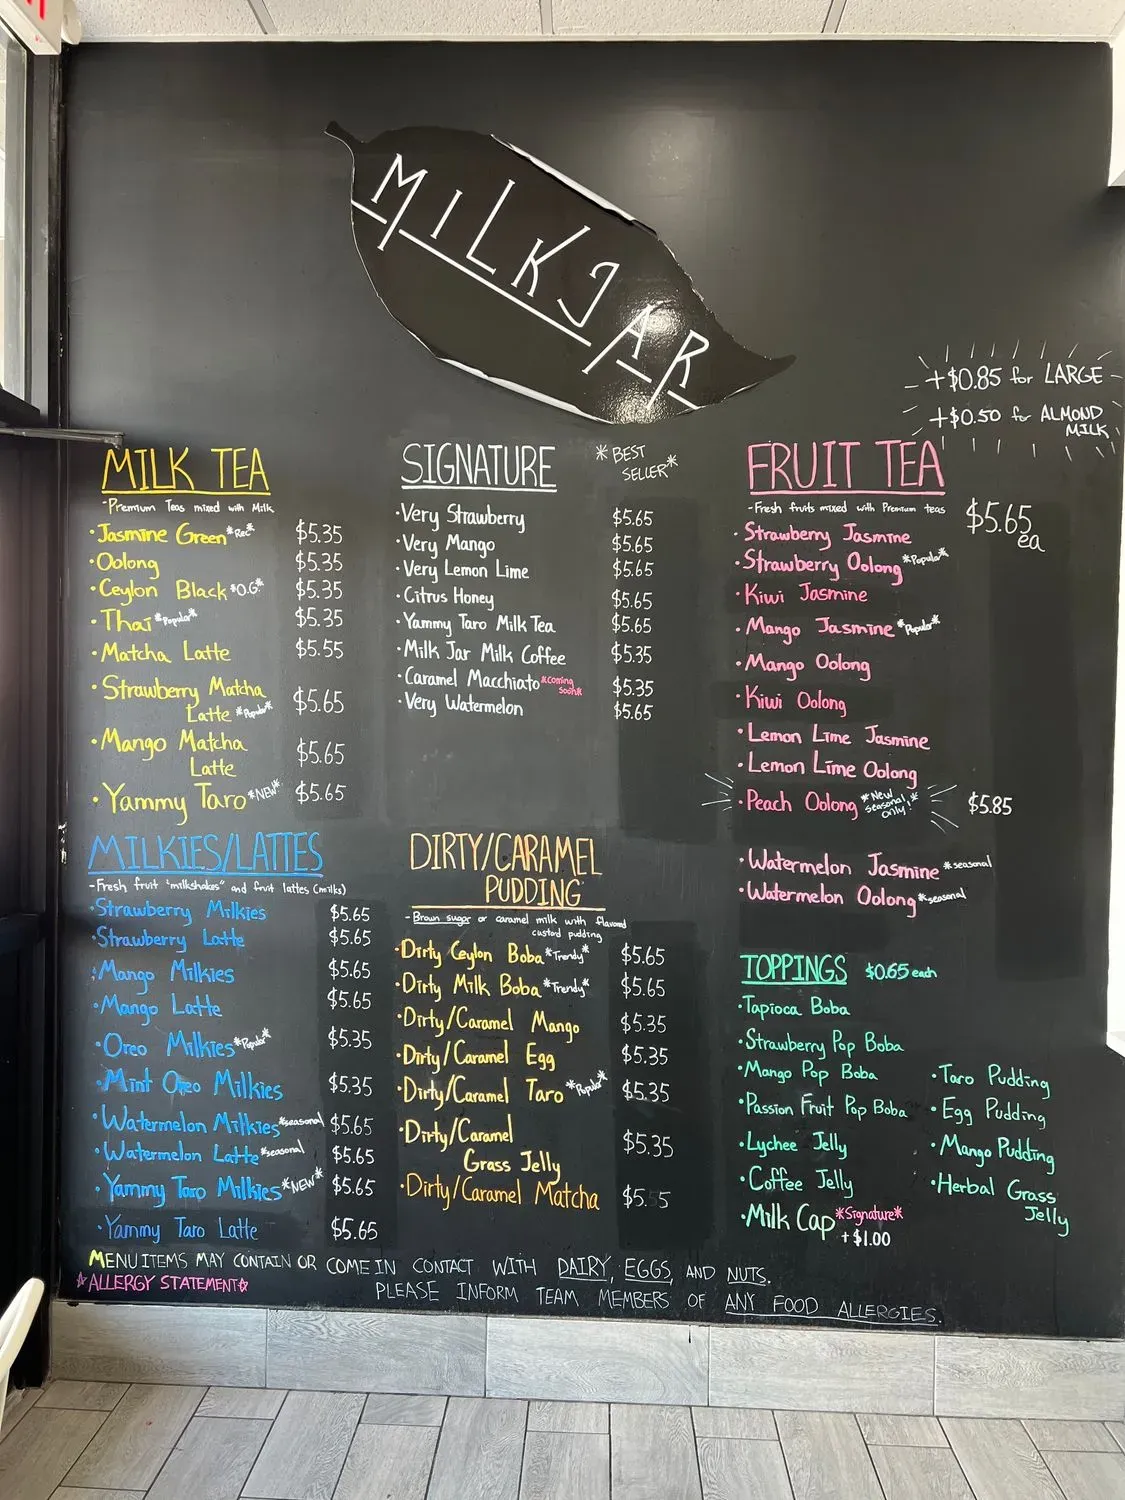 MILKJAR
+$0.85 for LARGE
+$0.50 for ALMOND
MILK
MILK TEA
-Premium Teas mixed with Milk
·Jasmine Green *Rec* $5.35
·Oolong $5.35
·Ceylon Black *O.G.* $5.35
·Thai *Popular* $5.35
·Matcha Latte $5.55
·Strawberry Matcha
Latte *Popular* $5.65
·Mango Matcha
Latte $5.65
·Yammy Taro *NEW* $5.65
SIGNATURE
*BEST
SELLER*
·Very Strawberry $5.65
·Very Mango $5.65
·Very Lemon Lime $5.65
·Citrus Honey $5.65
·Yammy Taro Milk Tea $5.65
·Milk Jar Milk Coffee $5.35
·Caramel Macchiato *Coming Soon* $5.35
·Very Watermelon $5.65
FRUIT TEA
-Fresh fruits mixed with Premium teas
$5.65
ea
·Strawberry Jasmine
·Strawberry Oolong *Popular*
·Kiwi Jasmine
·Mango Jasmine *Popular*
·Mango Oolong
·Kiwi Oolong
·Lemon Lime Jasmine
·Lemon Lime Oolong
·Peach Oolong *New seasonal only!* $5.85
·Watermelon Jasmine *seasonal
·Watermelon Oolong *seasonal
MILKIES/LATTES
-Fresh fruit "milkshakes" and fruit lattes (milks)
·Strawberry Milkies $5.65
·Strawberry Latte $5.65
·Mango Milkies $5.65
·Mango Latte $5.65
·Oreo Milkies *Popular* $5.35
·Mint Oreo Milkies $5.35
·Watermelon Milkies *seasonal $5.65
·Watermelon Latte *seasonal $5.65
·Yammy Taro Milkies *NEW* $5.65
·Yammy Taro Latte $5.65
DIRTY/CARAMEL
PUDDING
-Brown sugar or caramel milk with flavored
custard pudding
·Dirty Ceylon Boba *Trendy* $5.65
·Dirty Milk Boba *Trendy* $5.65
·Dirty/Caramel Mango $5.35
·Dirty/Caramel Egg $5.35
·Dirty/Caramel Taro *Popular* $5.35
·Dirty/Caramel
Grass Jelly $5.35
·Dirty/Caramel Matcha $5.55
TOPPINGS $0.65 each
·Tapioca Boba
·Strawberry Pop Boba
·Mango Pop Boba
·Passion Fruit Pop Boba
·Lychee Jelly
·Coffee Jelly
·Milk Cap *Signature*
+$1.00
·Taro Pudding
·Egg Pudding
·Mango Pudding
·Herbal Grass
Jelly
MENU ITEMS MAY CONTAIN OR COME IN CONTACT WITH DAIRY, EGGS, AND NUTS.
☆ALLERGY STATEMENT☆ PLEASE INFORM TEAM MEMBERS OF ANY FOOD ALLERGIES.